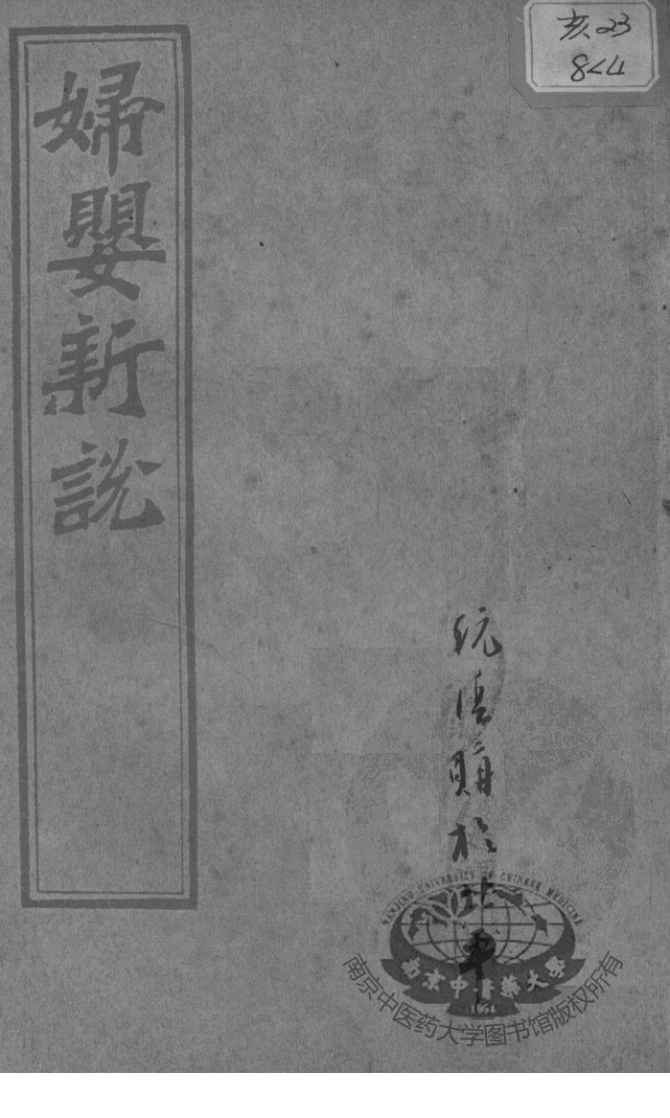 亥.23
8<4
婦嬰新說
購於北平
NANJING UNIVERSITY OF CHINESE MEDICINE
南京中医药大学
南京中医药大学图书馆版权所有